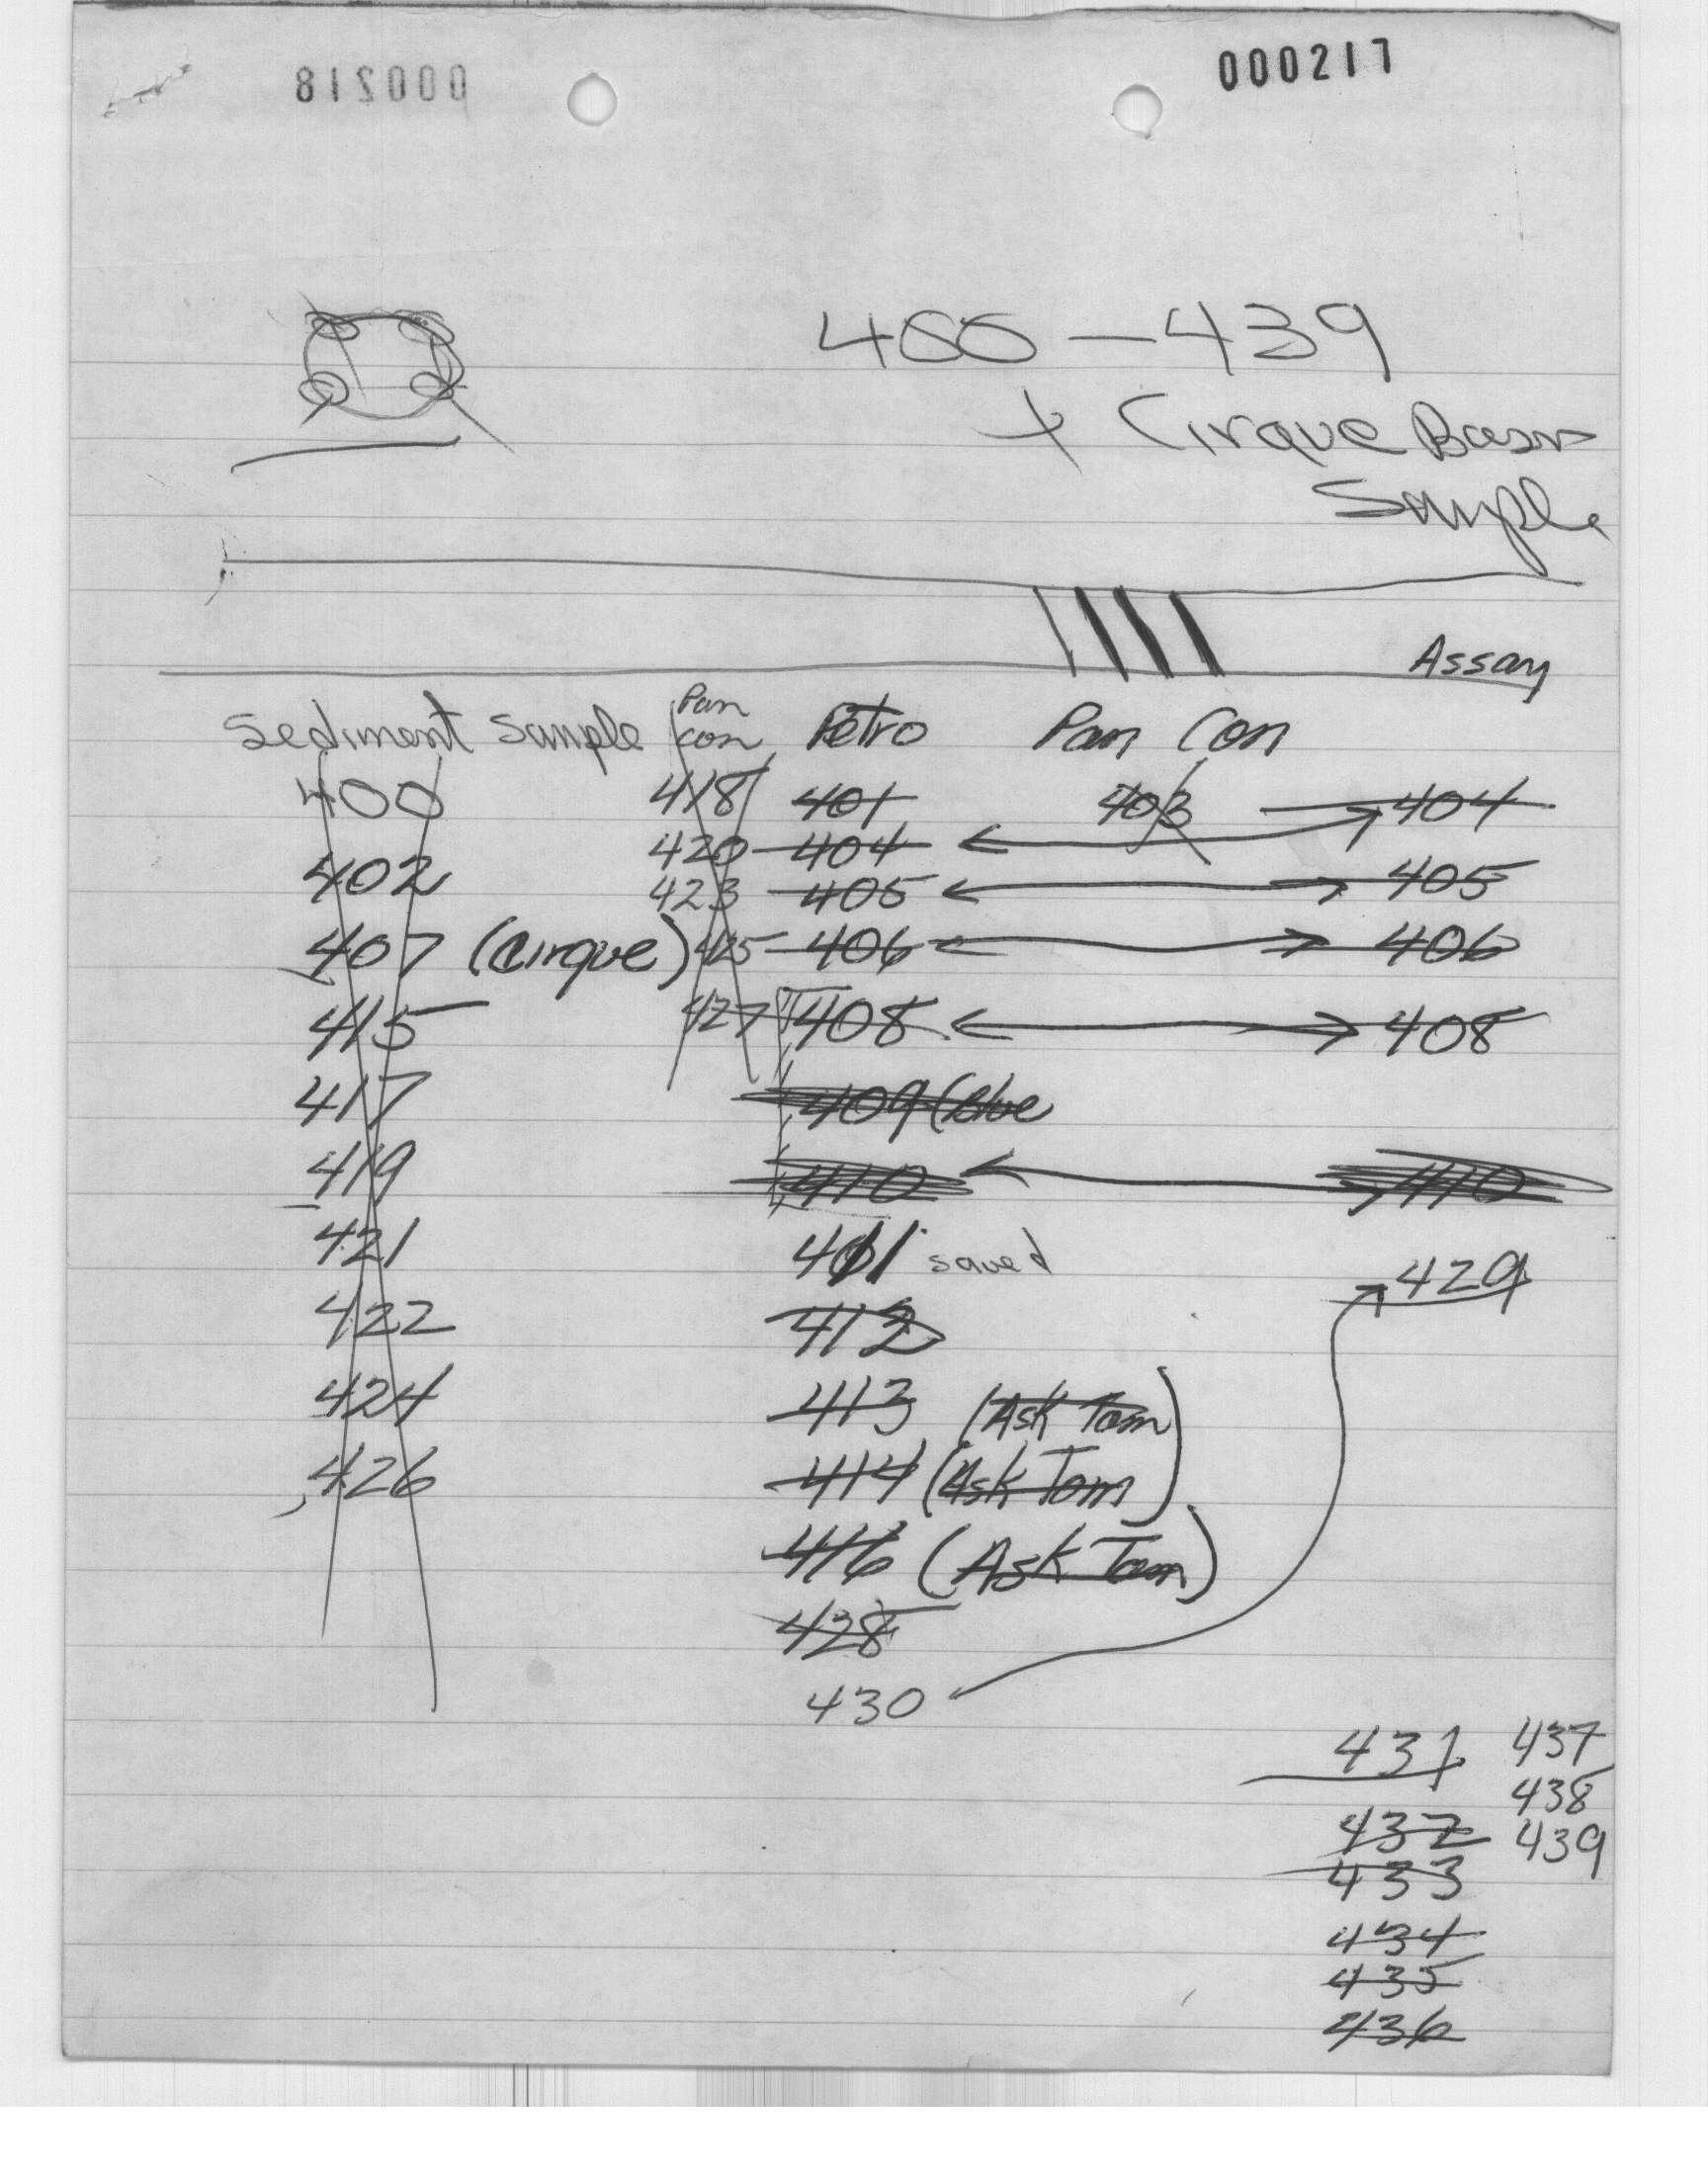 000218
000217
400 - 439
+ Cirque Basin
Sample
Assay
Sediment Sample Pan con Petro Pan Con
400 418 401 403 404
420 404
402 423 405 405
407 (Cirque) 425 406 406
415 427 408 408
417 409 (Blue
419 410 410
421 411 saved 429
422 412
424 413 (Ask Tom)
426 414 (Ask Tom)
416 (Ask Tom)
428
430
431 437
438
432 439
433
434
435
436